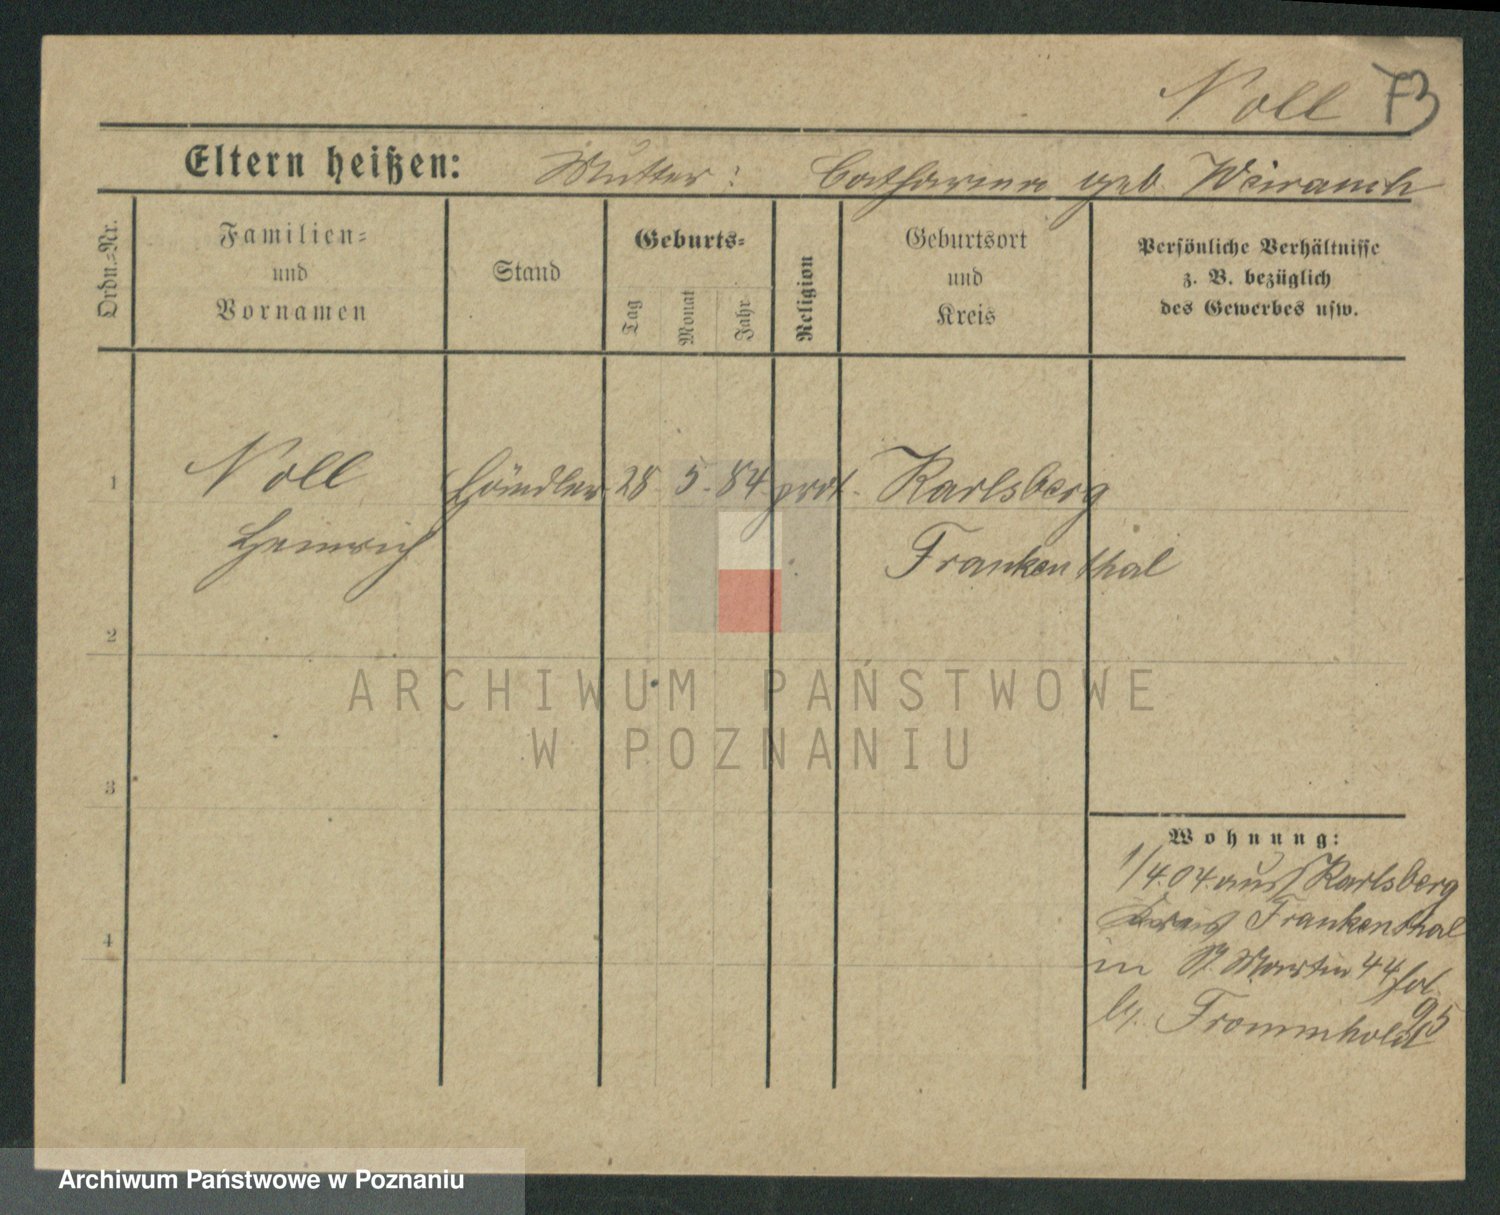 Noll 73
Eltern heißen: Mutter: Catharina geb. Weirauch
Ordn.=Nr.
Familien=
und
Vornamen
Stand
Geburts=
Tag
Monat
Jahr
Religion
Geburtsort
und
Kreis
Persönliche Verhältnisse
z. B. bezüglich
des Gewerbes usw.
1
Noll Händler 28. 5. 84. prot. Karlsberg
Heinrich Frankenthal
2
3
4
Wohnung:
1/4.04. aus Karlsberg
Kreis Frankenthal
in St. Martin 44
b/. Frommhold 95
ARCHIWUM PAŃSTWOWE
W POZNANIU
Archiwum Państwowe w Poznaniu